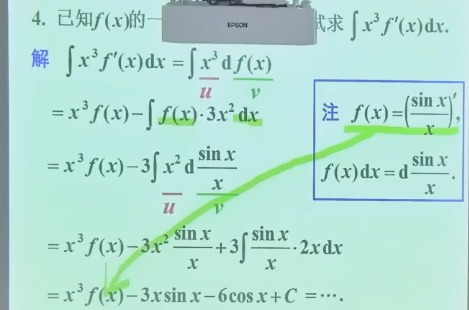 4. 已知f(x)的一 EPSON 试求 ∫x³f′(x)dx.
解 ∫x³f′(x)dx = ∫x³ d f(x)
u v
= x³f(x) − ∫f(x)·3x²dx
注 f(x) = (sin x / x)′,
= x³f(x) − 3∫x² d sin x / x
f(x)dx = d sin x / x.
u v
= x³f(x) − 3x² sin x / x + 3∫ sin x / x · 2xdx
= x³f(x) − 3x sin x − 6cos x + C = ⋯.